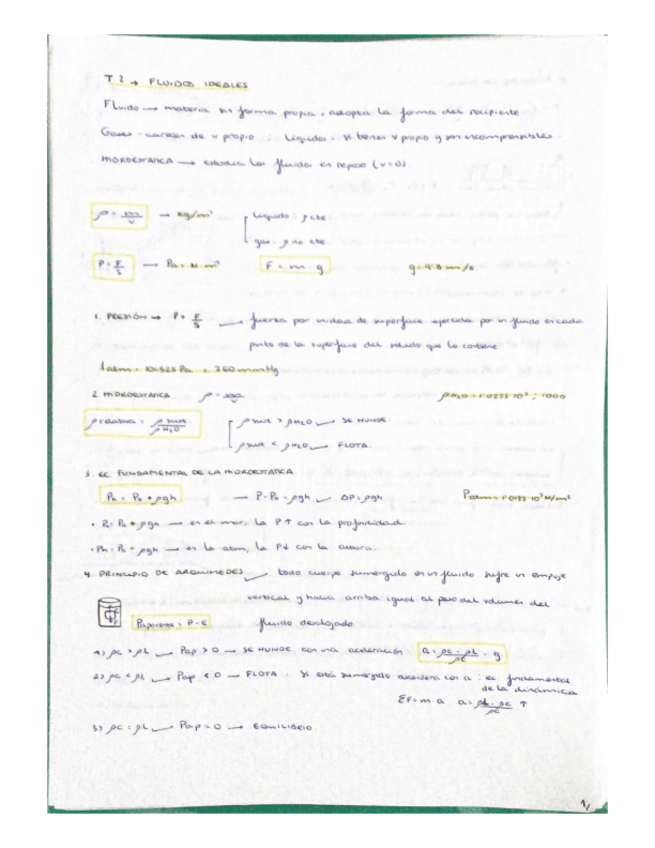 T 2 → FLUIDOS IDEALES
Fluido → materia sin forma propia; adopta la forma del recipiente
Gases - carecen de v propio ; Líquidos - si tienen v propio y son incompresibles
HIDROSTÁTICA → estudia los fluidos en reposo (v=0).
ρ = m/v → kg/m³
Líquido: ρ cte
gas: ρ no cte
P = F/S → Pa = N m²
F = m · g
g = 9.8 m/s
1. PRESIÓN → P = F/S → fuerza por unidad de superficie ejercida por un fluido en cada
punto de la superficie del sólido que lo contiene
1 atm = 101325 Pa = 760 mmHg
2. HIDROSTÁTICA
ρ relativa = ρ sust / ρ H₂O
ρ sust > ρ H₂O → SE HUNDE
ρ sust < ρ H₂O → FLOTA
3. EC. FUNDAMENTAL DE LA HIDROSTÁTICA
Ph = P₀ + ρgh → P - P₀ = ρgh → ΔP = ρgh
Patm = 1'0133 10⁵ N/m²
• Ph = P₀ + ρgh → en el mar, la P↑ con la profundidad
• Ph = P₀ - ρgh → en la atm, la P↓ con la altura.
4. PRINCIPIO DE ARQUÍMEDES → todo cuerpo sumergido en un fluido sufre un empuje
vertical y hacia arriba igual al peso del volumen del
fluido desalojado
Paparente = P - E
1) ρc > ρL → Pap > 0 → SE HUNDE con una aceleración a = ρc - ρL / ρc · g
2) ρc < ρL → Pap < 0 → FLOTA. Si está sumergido ascenderá con a : ec. fundamental
de la dinámica
ΣF = m·a a = ρL - ρc / ρc ↑
3) ρc = ρL → Pap = 0 → EQUILIBRIO.
1/